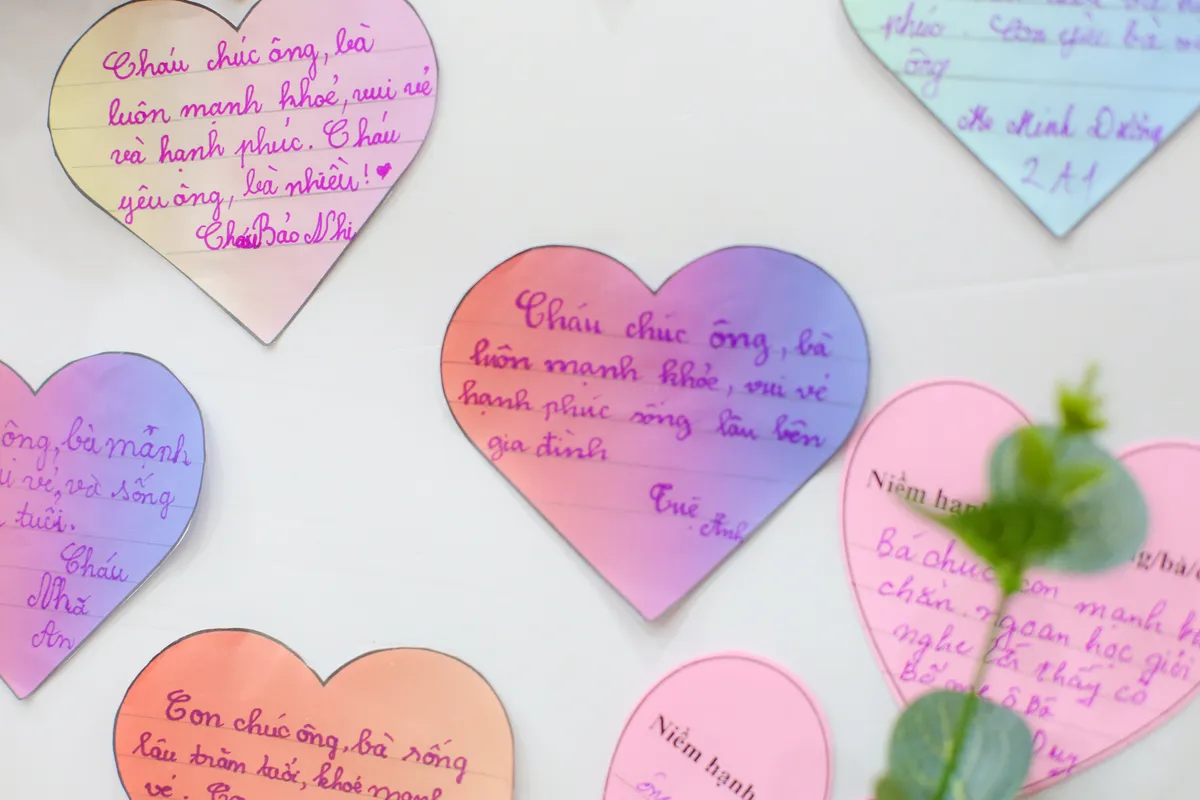 Cháu chúc ông, bà
luôn mạnh khoẻ, vui vẻ
và hạnh phúc. Cháu
yêu ông, bà nhiều!
Cháu Bảo Nhi
phúc. Con yêu bà
ông
Minh Dương
2A1
Cháu chúc ông, bà
luôn mạnh khỏe, vui vẻ
hạnh phúc sống lâu bên
gia đình
Tuệ Anh
ông, bà mạnh
vẻ, và sống
tuổi.
Cháu
Nhã
An
Niềm
g/bà/
con mạnh
ngoan học giỏi
nghe thầy cô
Duy
Con chúc ông, bà sống
lâu trăm tuổi, khoẻ mạnh
vẻ.
Niềm hạnh
ông